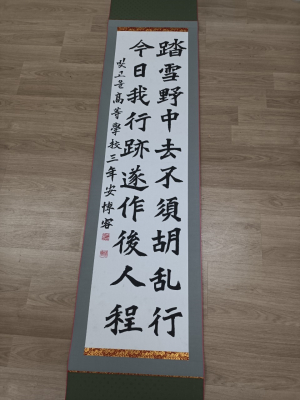 踏雪野中去不須胡乱行
今日我行跡遂作後人程
高等學校三年安